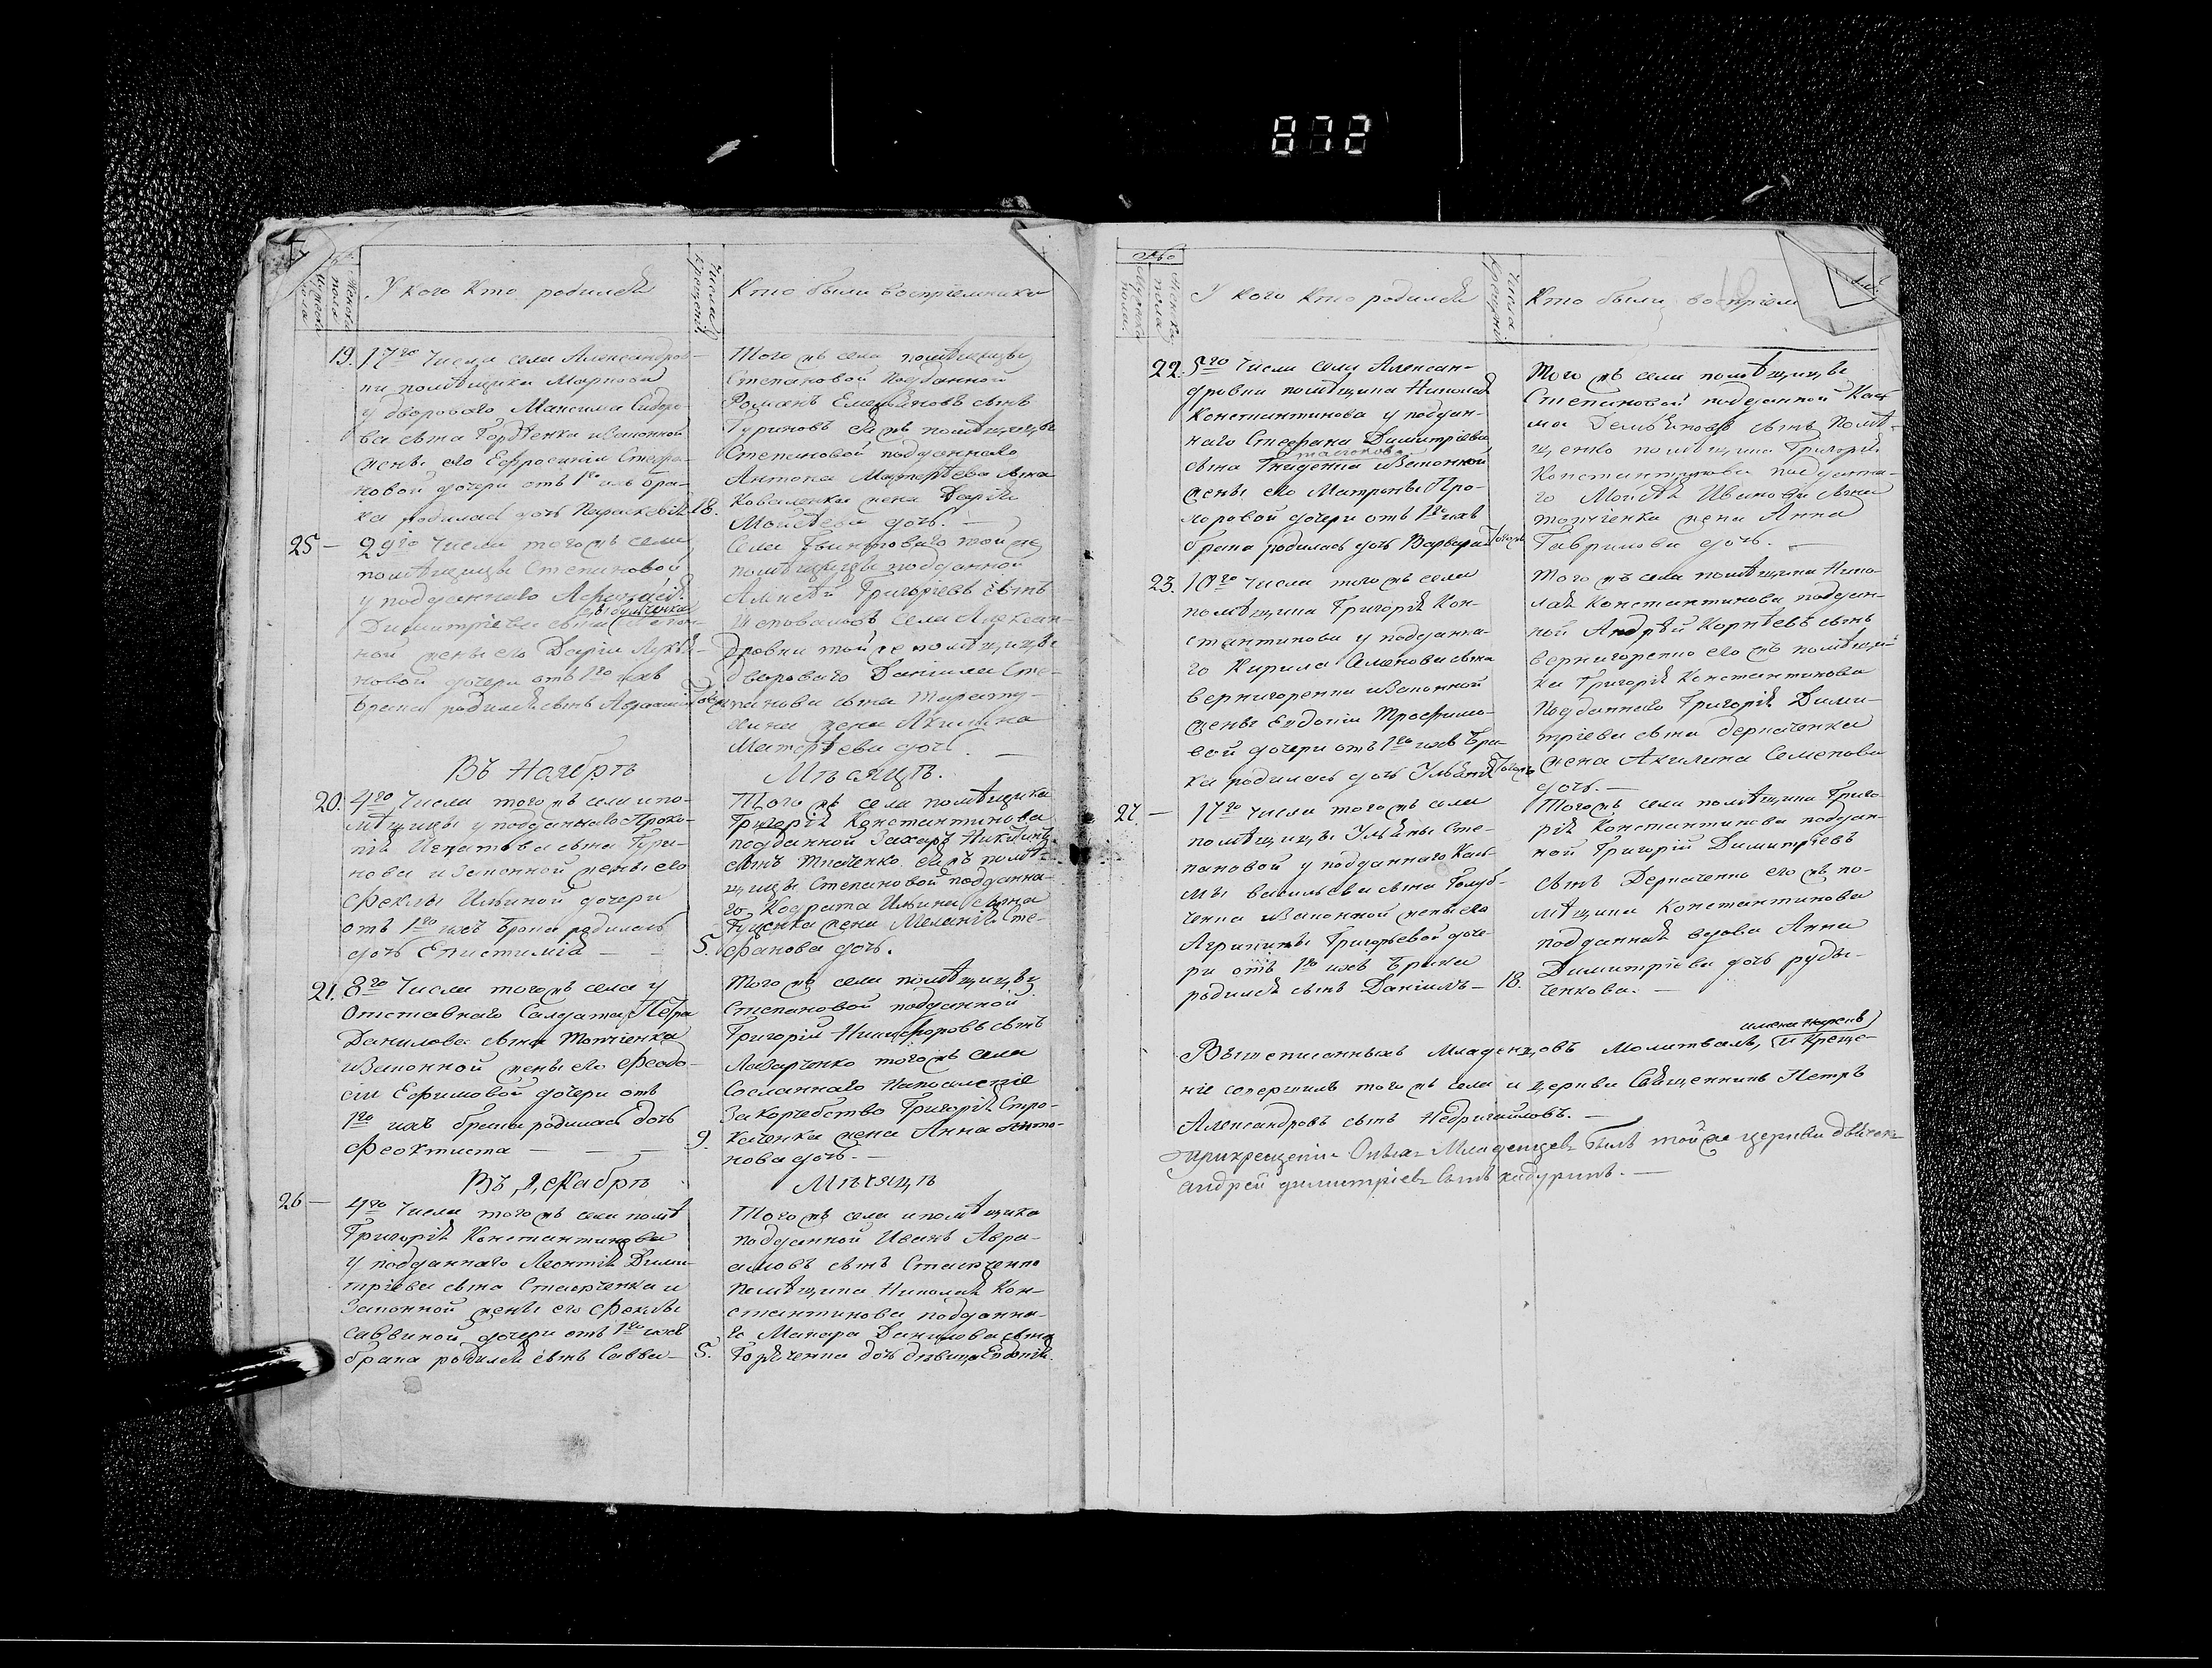 872
№
Женска
пола
Мужеска
пола
У кого кто родился
Числа
Крещенія
Кто были воспріемники
19. 17го числа села Александров-
ки помѣщика Маркова
у двороваго Максима Сидоро-
ва сына Гордѣенка изаконной
жены его Ефросиніи Стефа-
новой дочери отъ 1го ихъ бра-
ка родилась дочь Параскевія 18.
Того жъ села помѣщицы
Степановой подданной
Романъ Емельяновъ сынъ
Гуриновъ ея жъ помѣщицы
Степановой подданнаго
Антона Матфѣева сына
Коваленка жена Дарія
Моисѣева дочь. —
25 — 29го числа того жъ села
помѣщицы Степановой
у подданнаго Афанасія
Димитріева сына
ной жены его Даріи Лукья-
новой дочери отъ 1го ихъ
брака родился сынъ Авраамій
Села той же
помѣщицы подданной
Алисѣй Григоріевъ сынъ
Шаповаловъ села Алексан-
дровки той же помѣщицы
двороваго Даніила Сте-
панова сына
жена Акилина
Матфѣева дочь. —
Въ Ноябрѣ
Мѣсяцѣ.
20. 4го числа того жъ села и по-
мѣщицы у подданнаго Проко-
пія Игнатова сына
нова изаконной жены его
Феклы Ильиной дочери
отъ 1го ихъ брака родилась
дочь Епистимія — 5.
Того жъ села помѣщика
Григорія Константинова
подданной Захаръ Никитинъ
сынъ Ткаченко ея жъ помѣ-
щицы Степановой подданна-
го Кодрата Ильина сына
Гуценка жена Меланія Сте-
фанова дочь.
21. 8го числа того жъ села у
отставнаго салдата Петра
Данилова сына Топчіенка
изаконной жены его Феодо-
сіи Ефимовой дочери отъ
1го ихъ брака родилась дочь
Феоктиста — — — 9.
Того жъ села помѣщицы
Степановой подданной
Григорій Никифоровъ сынъ
Лазарченко того жъ села
Сосланнаго на поселеніе
за корчебство Григорія Стро-
каченка жена Анна Анто-
нова дочь. —
Въ Декабрѣ
Мѣсяцѣ
26 — 4го числа того жъ села помѣ
Григорія Константинова
у подданнаго Леонтія Дими-
тріева сына Стаюрченка и
законной жены его Феклы
Саввиной дочери отъ 1го ихъ
брака родился сынъ Савва — 5.
Того жъ села и помѣщика
подданной Иванъ Авра-
амовъ сынъ Стаюрченко
помѣщика Николая Кон-
стантинова подданна-
го Макара Данилова сына
дочь дѣвица Евдокія.
№
Женска
пола
Мужеска
пола.
У кого кто родился
Числа
Крещенія.
Кто были воспріем
22. 5го числа села Алексан-
дровки помѣщика Николая
Константинова у поддан-
наго Стефана Димитріева
сына Гниденка изаконной
жены его Матроны Про-
хоровой дочери отъ 1го ихъ
брака родилась дочь Варвара
Того жъ села помѣщицы
Степановой подданной Кось
ма Демьяновъ сынъ
помѣщика Григорія
Константинова подданна-
го Моисѣя Иванова сына
Топчіенка жена Анна
Гаврилова дочь. —
23. 10го числа того жъ села
помѣщика Григорія Кон-
стантинова у подданна-
го Кирила Семенова сына
Вернигоренка изаконной
жены Евдокіи Трофимо-
вой дочери отъ 1го ихъ бра-
ка родилась дочь Ульянія
Того жъ села помѣщика Нико-
лая Константинова поддан-
ной Андрѣй Корнѣевъ сынъ
Вернигоренко его жъ помѣщи-
ка Григорія Константинова
подданнаго Григорія Дими-
тріева сына Дерначенка
жена Акилина Семенова
дочь. —
27 — 17го числа того жъ села
помѣщицы Ульяны Сте-
пановой у подданнаго Кось-
мы Васильева сына Голуб-
ченка изаконной жены его
Агрипины Григорьевой доче-
ри отъ 1го ихъ брака
родился сынъ Даніилъ — 18.
Того жъ села помѣщика Григо-
рія Константинова поддан-
ной Григорій Димитріевъ
сынъ Дерначенко его жъ по-
мѣщика Константинова
подданная вдова Анна
Димитріева дочь Рудь-
ченкова. —
Вышеписанныхъ младенцовъ молитвалъ, имена нарекъ и креще-
ніе совершилъ того жъ села и церкви Священникъ Петръ
Александровъ сынъ Недригайловъ. —
при крещеніи Оныхъ Младенцевъ былъ той же церкви дьячекъ
андрей димитріевъ сынъ